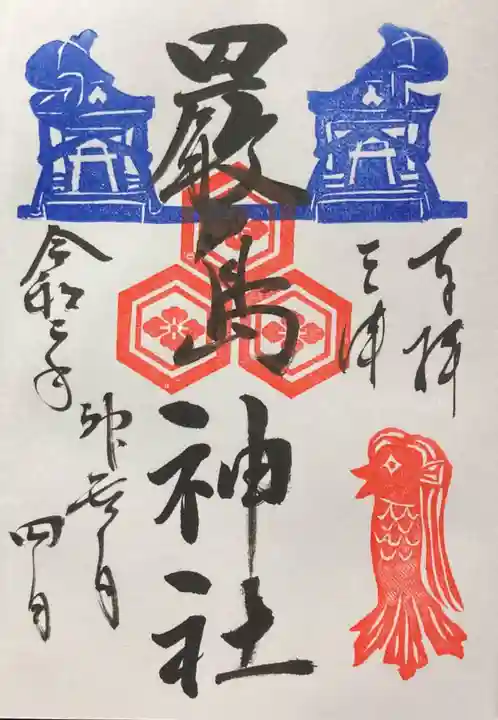 奉拝
三津
厳島神社
令和二年
神無月
四日